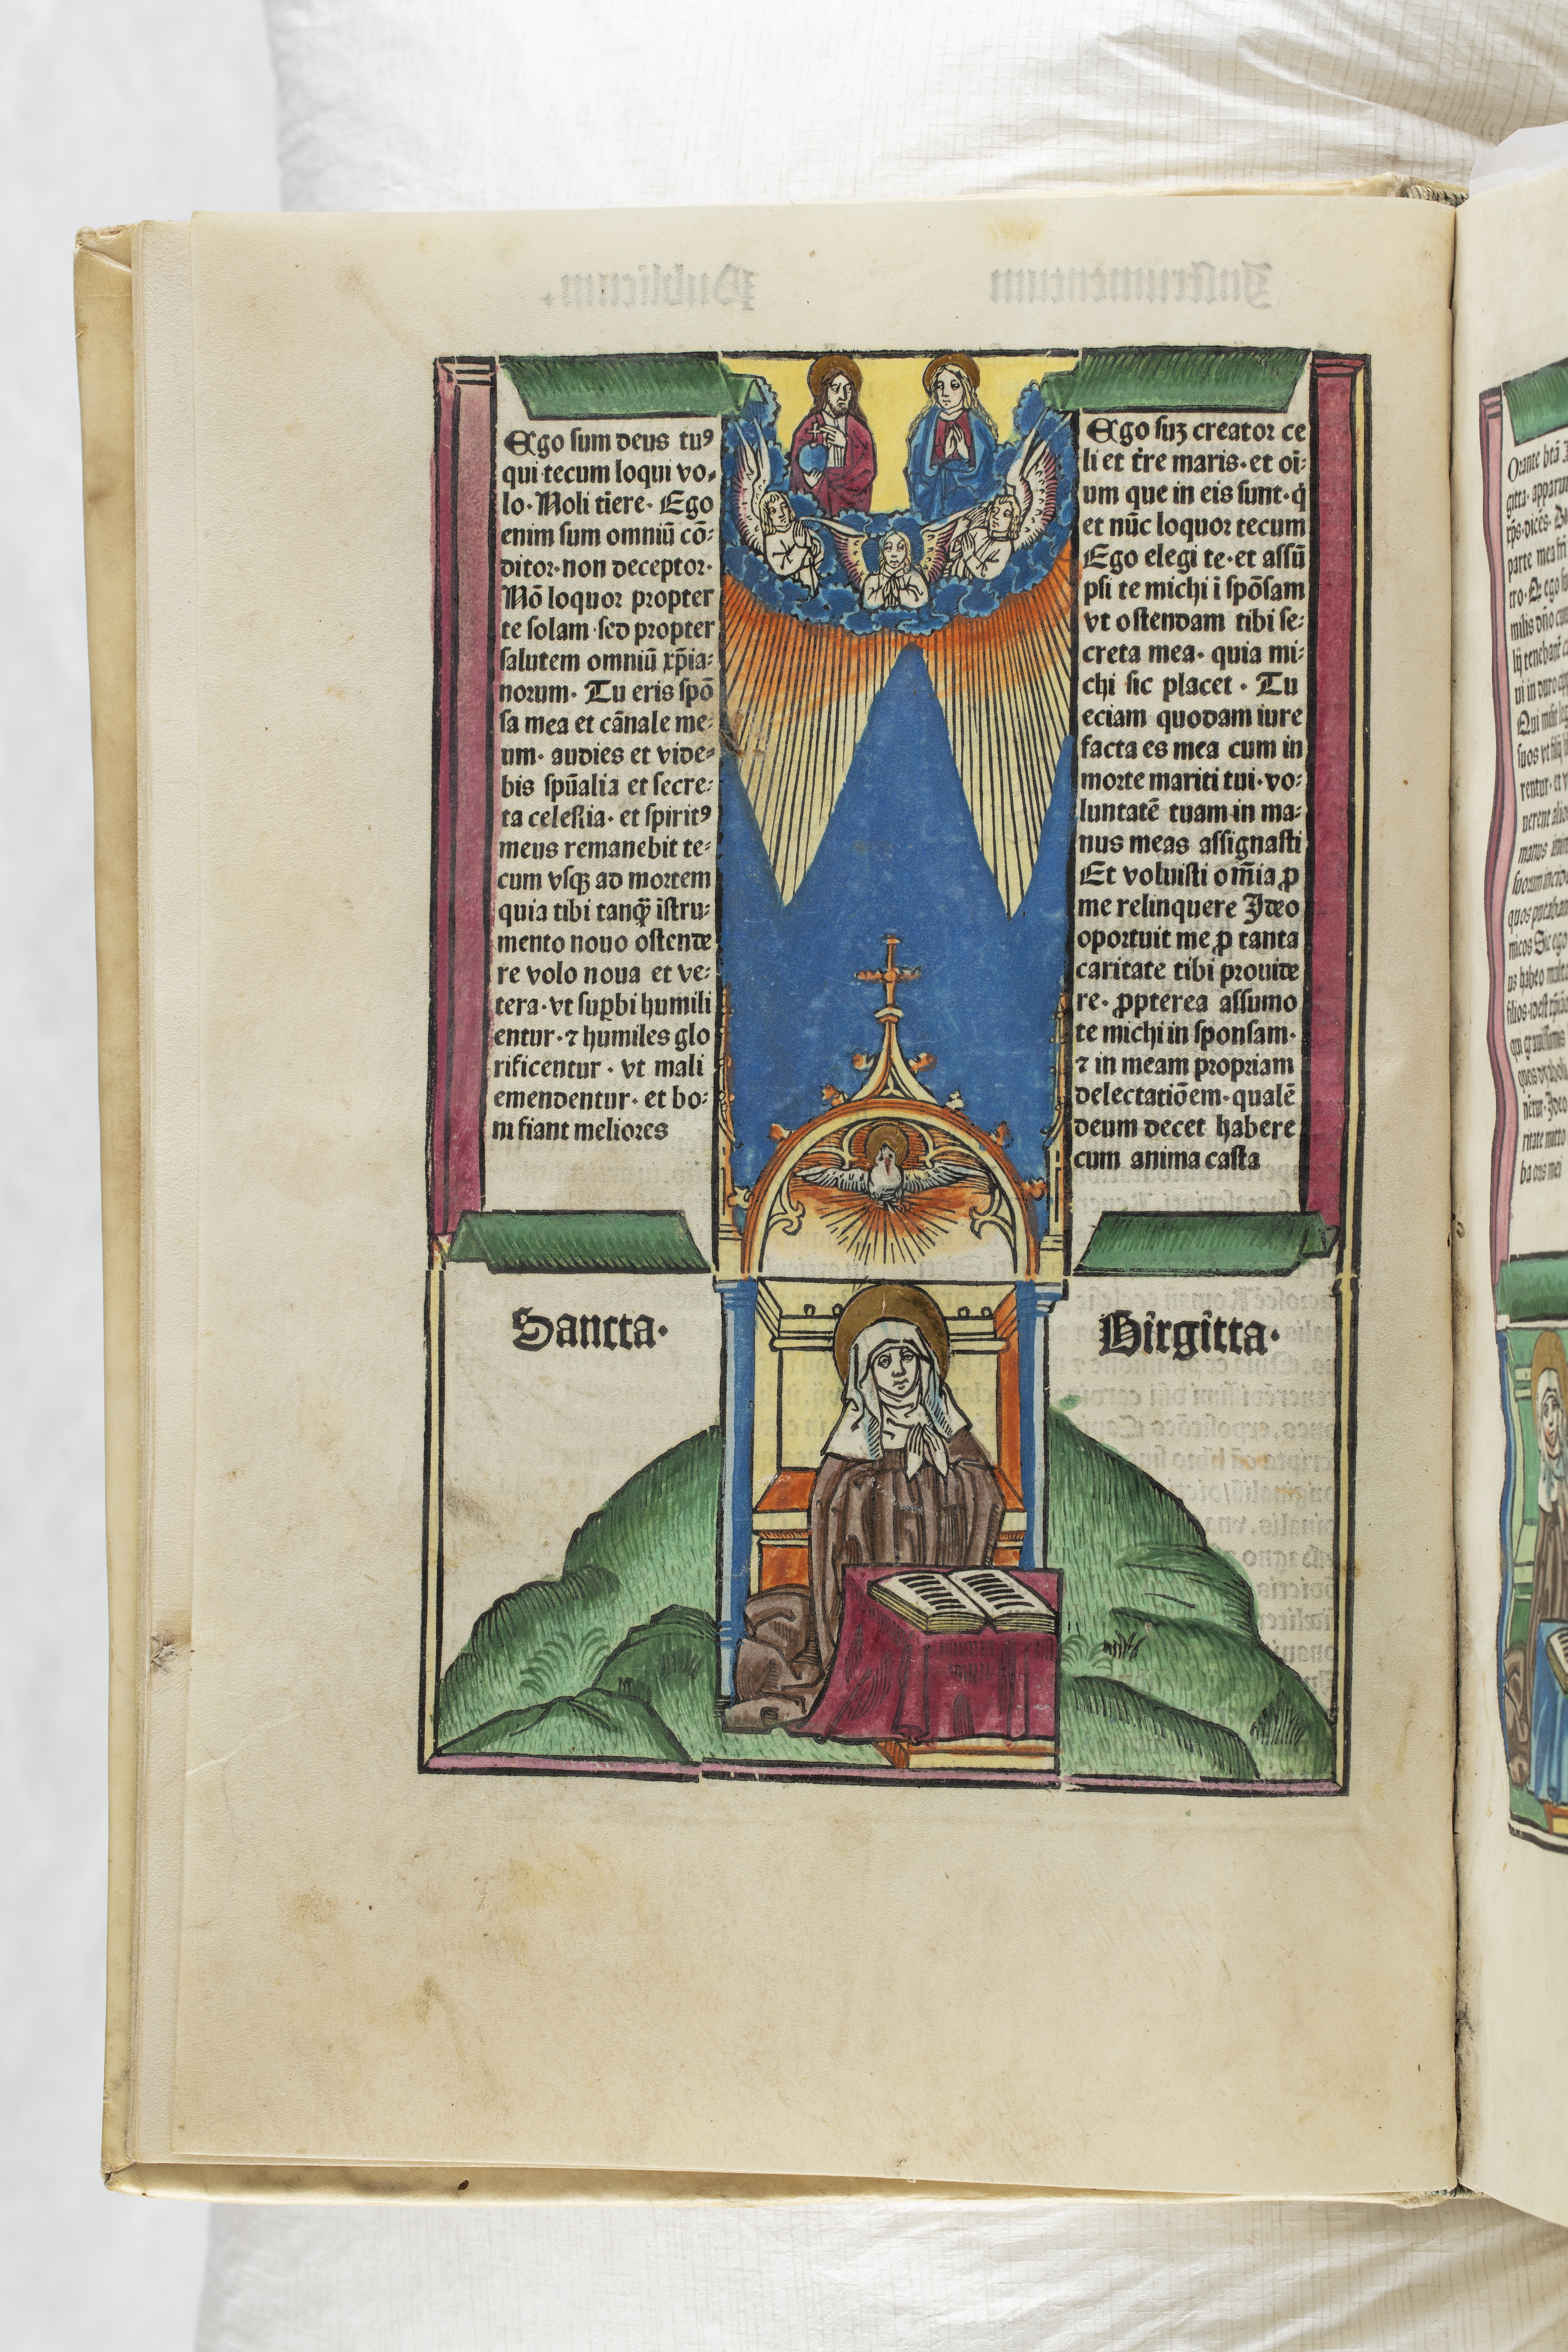 Ego sum deus tuꝰ
qui tecum loqui vo⸗
lo· Noli tīere· Ego
enim sum omniū cō⸗
ditor·non deceptor·
Nō loquor propter
te solam·sed propter
salutem omniū xp̄ia⸗
norum· Tu eris spō
sa mea et cānale me⸗
um· audies et vide⸗
bis spūalia et secre⸗
ta celestia· et spiritꝰ
meus remanebit te⸗
cum vsqꝫ ad mortem
quia tibi tanq̄ īstru⸗
mento nouo ostende
re volo noua et ve⸗
tera·vt suꝑbi humili
entur·⁊ humiles glo
rificentur· vt mali
emendentur· et bo⸗
ni fiant meliores
Ego suꝫ creator ce
li et t̄re maris·et oī⸗
um que in eis sunt·q̇
et nūc loquor tecum
Ego elegi te·et assū
psi te michi ī spōsam
vt ostendam tibi se⸗
creta mea· quia mi⸗
chi sic placet· Tu
eciam quodam iure
facta es mea cum in
morte mariti tui·vo⸗
luntatē tuam in ma⸗
nus meas assignasti
Et voluisti om̄ia ꝓ
me relinquere Ideo
oportuit me ꝓ tanta
caritate tibi prouide
re· ꝓpterea assumo
te michi in sponsam·
⁊ in meam propriam
delectatiōem·qualē
deum decet habere
cum anima casta
Sancta· Birgitta·